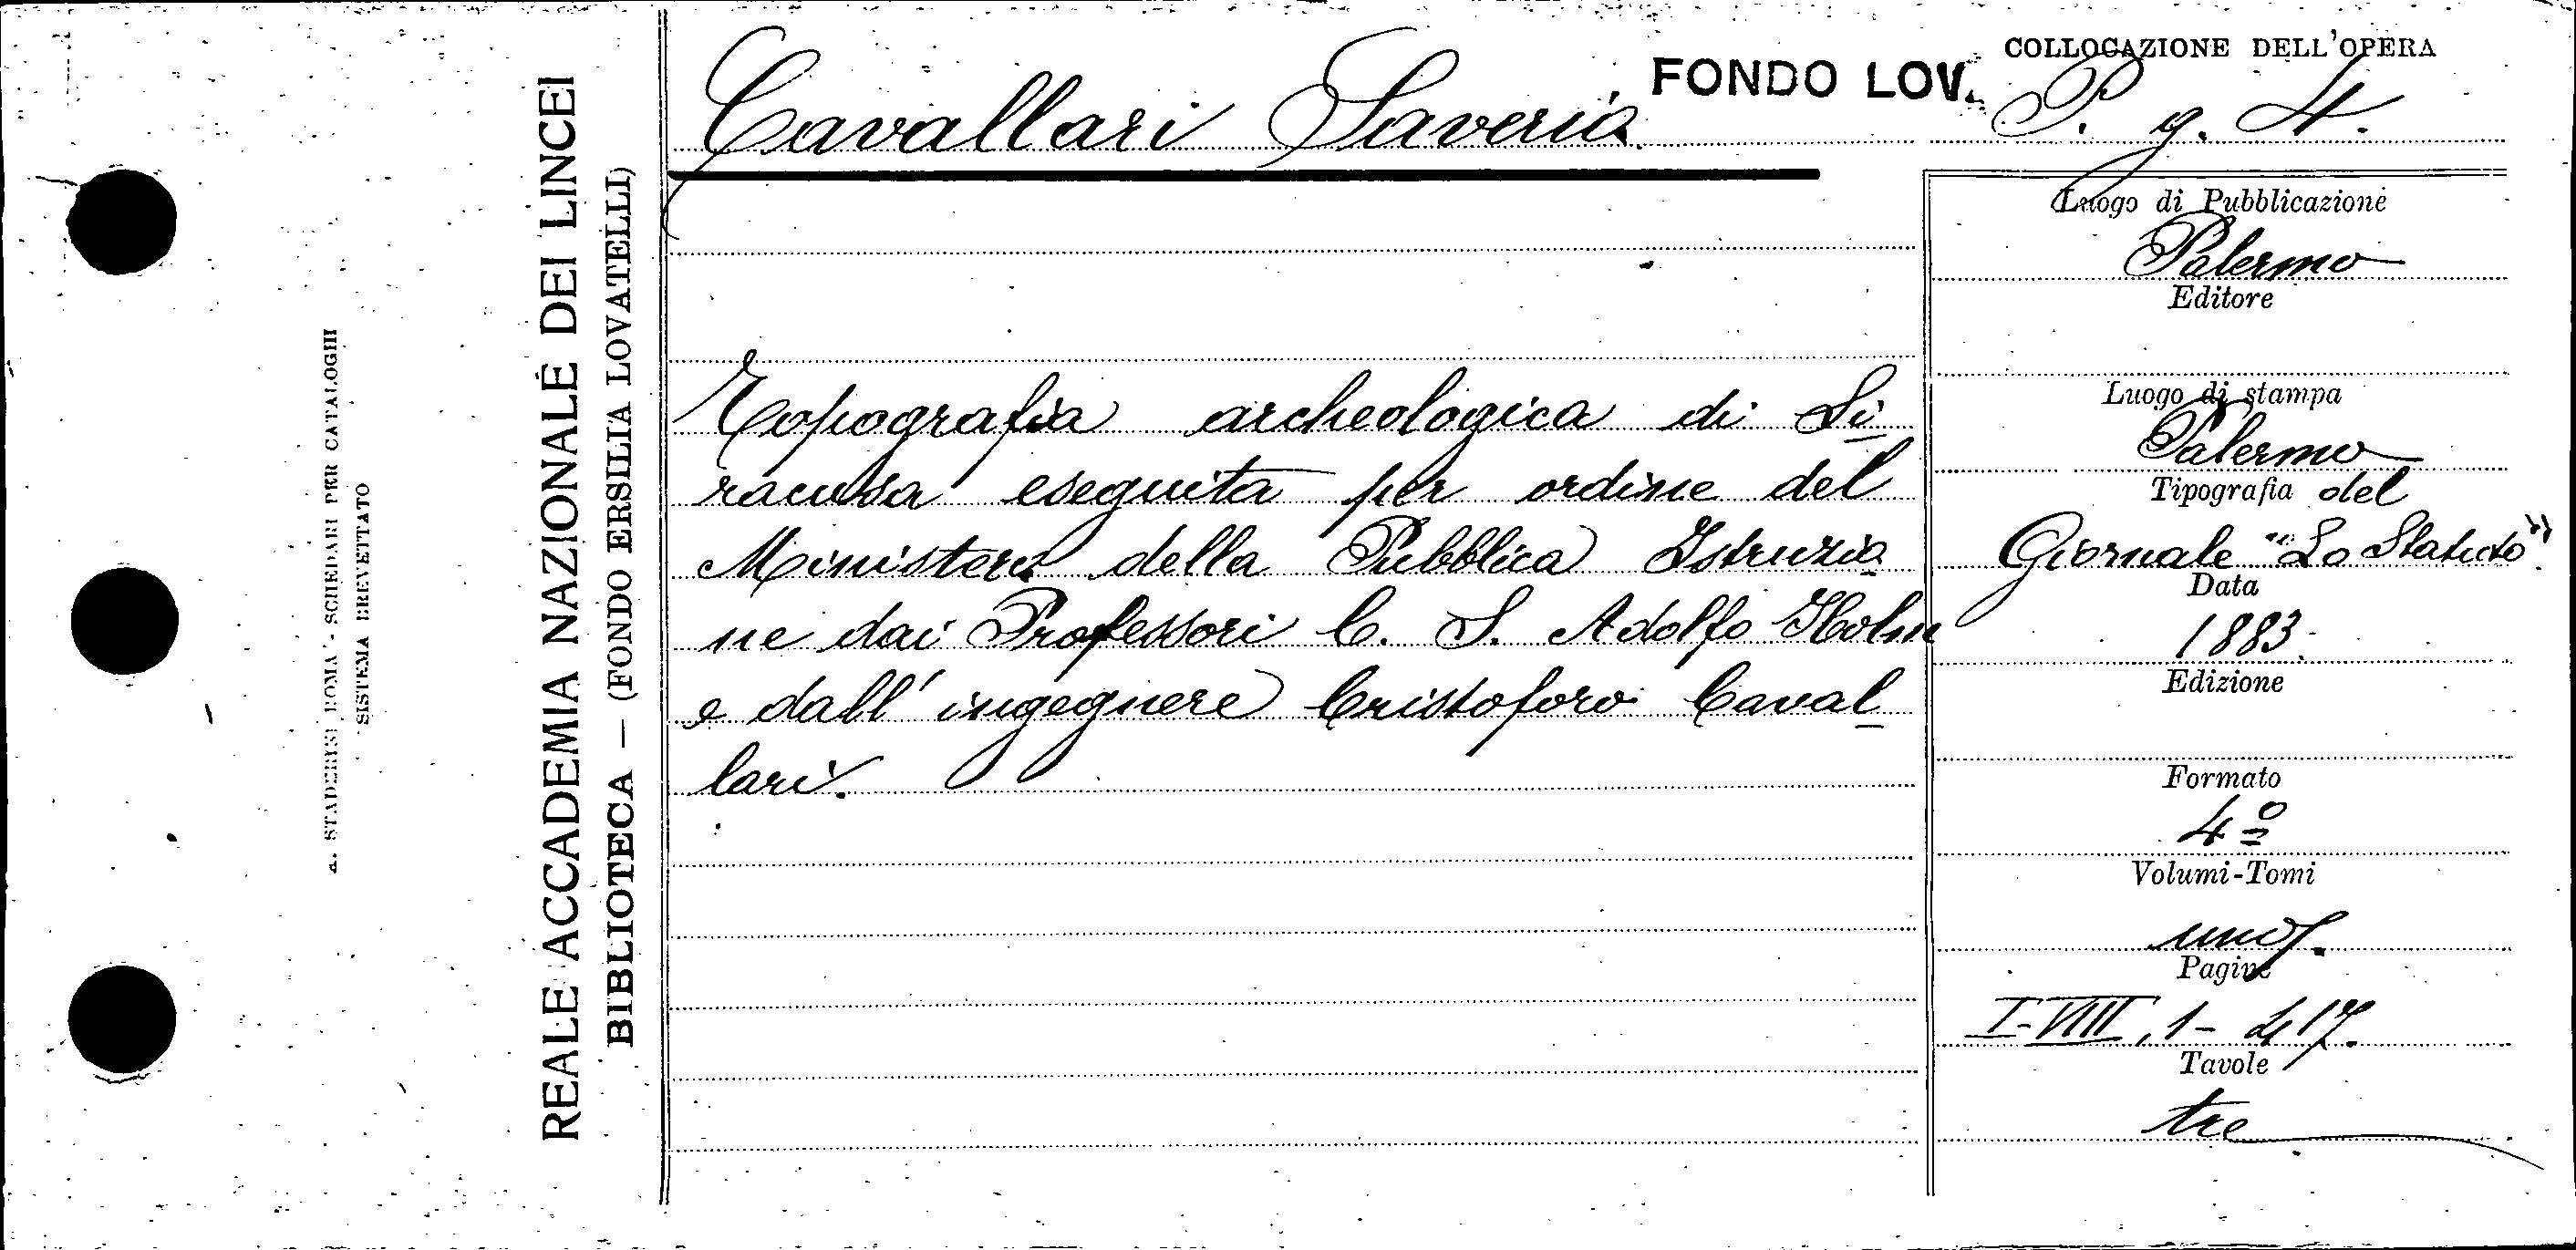 A. STADERINI ROMA - SCHEDARI PER CATALOGHI
SISTEMA BREVETTATO
REALE ACCADEMIA NAZIONALE DEI LINCEI
BIBLIOTECA — (FONDO ERSILIA LOVATELLI)
Cavallari Saverio
FONDO LOV.
COLLOCAZIONE DELL'OPERA
P. g. 4.
Topografia archeologica di Si
racusa eseguita per ordine del
Ministero della Pubblica Istruzio
ne dai Professori C. S. Adolfo Holm
e dall' ingegnere Cristoforo Caval
lari.
Luogo di Pubblicazione
Palermo
Editore
Luogo di stampa
Palermo
Tipografia del
Giornale "Lo Statuto".
Data
1883.
Edizione
Formato
4º
Volumi-Tomi
uno.
Pagine
I-VIII, 1-417.
Tavole
tre